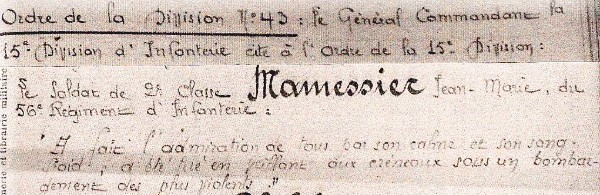 Ordre de la Division N° 43 : Le Général Commandant la
15e Division d'Infanterie cite à l'Ordre de la 15e Division :
Le Soldat de 2e Classe Mamessier Jean-Marie, du
56e Régiment d'Infanterie :
"A fait l'admiration de tous par son calme et son sang-
froid, a été tué en veillant aux créneaux sous un bombar-
dement des plus violents."
et librairie militaire